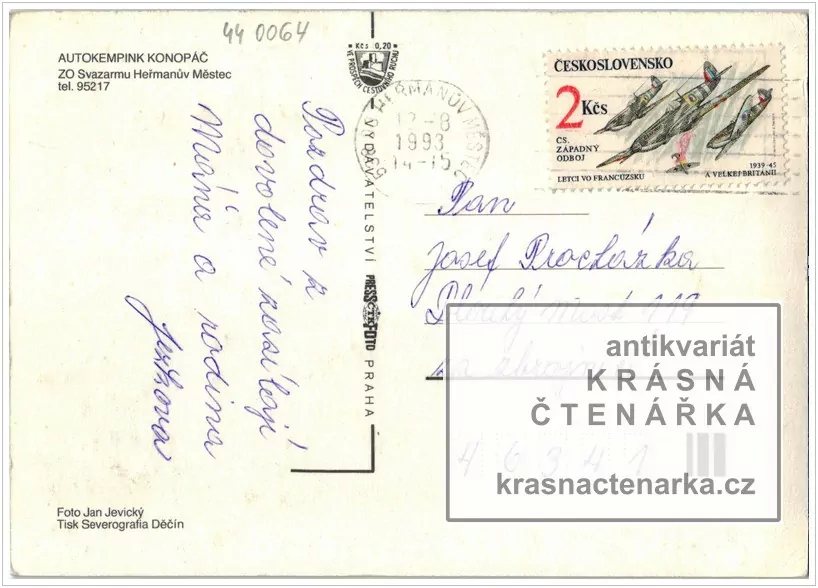 44 0064
AUTOKEMPINK KONOPÁČ
ZO Svazarmu Heřmanův Městec
tel. 95217
Kčs 0,20
VE PROSPĚCH CESTOVNÍHO RUCHU
HEŘMANŮV MĚSTEC
12-8
1993
14-15
ČESKOSLOVENSKO
2 Kčs
CS.
ZÁPADNÝ
ODBOJ
1939-45
LETCI VO FRANCÚZSKU A VEĽKEJ BRITÁNII
Pozdrav z
dovolené zasílají
Máňa a rodina
VYDAVATELSTVÍ PRESSFOTO PRAHA
Pan
Josef Procházka
Dlouhý Most 119
antikvariát
KRÁSNÁ
ČTENÁŘKA
4 6 3 4 1
krasnactenarka.cz
Foto Jan Jevický
Tisk Severografia Děčín